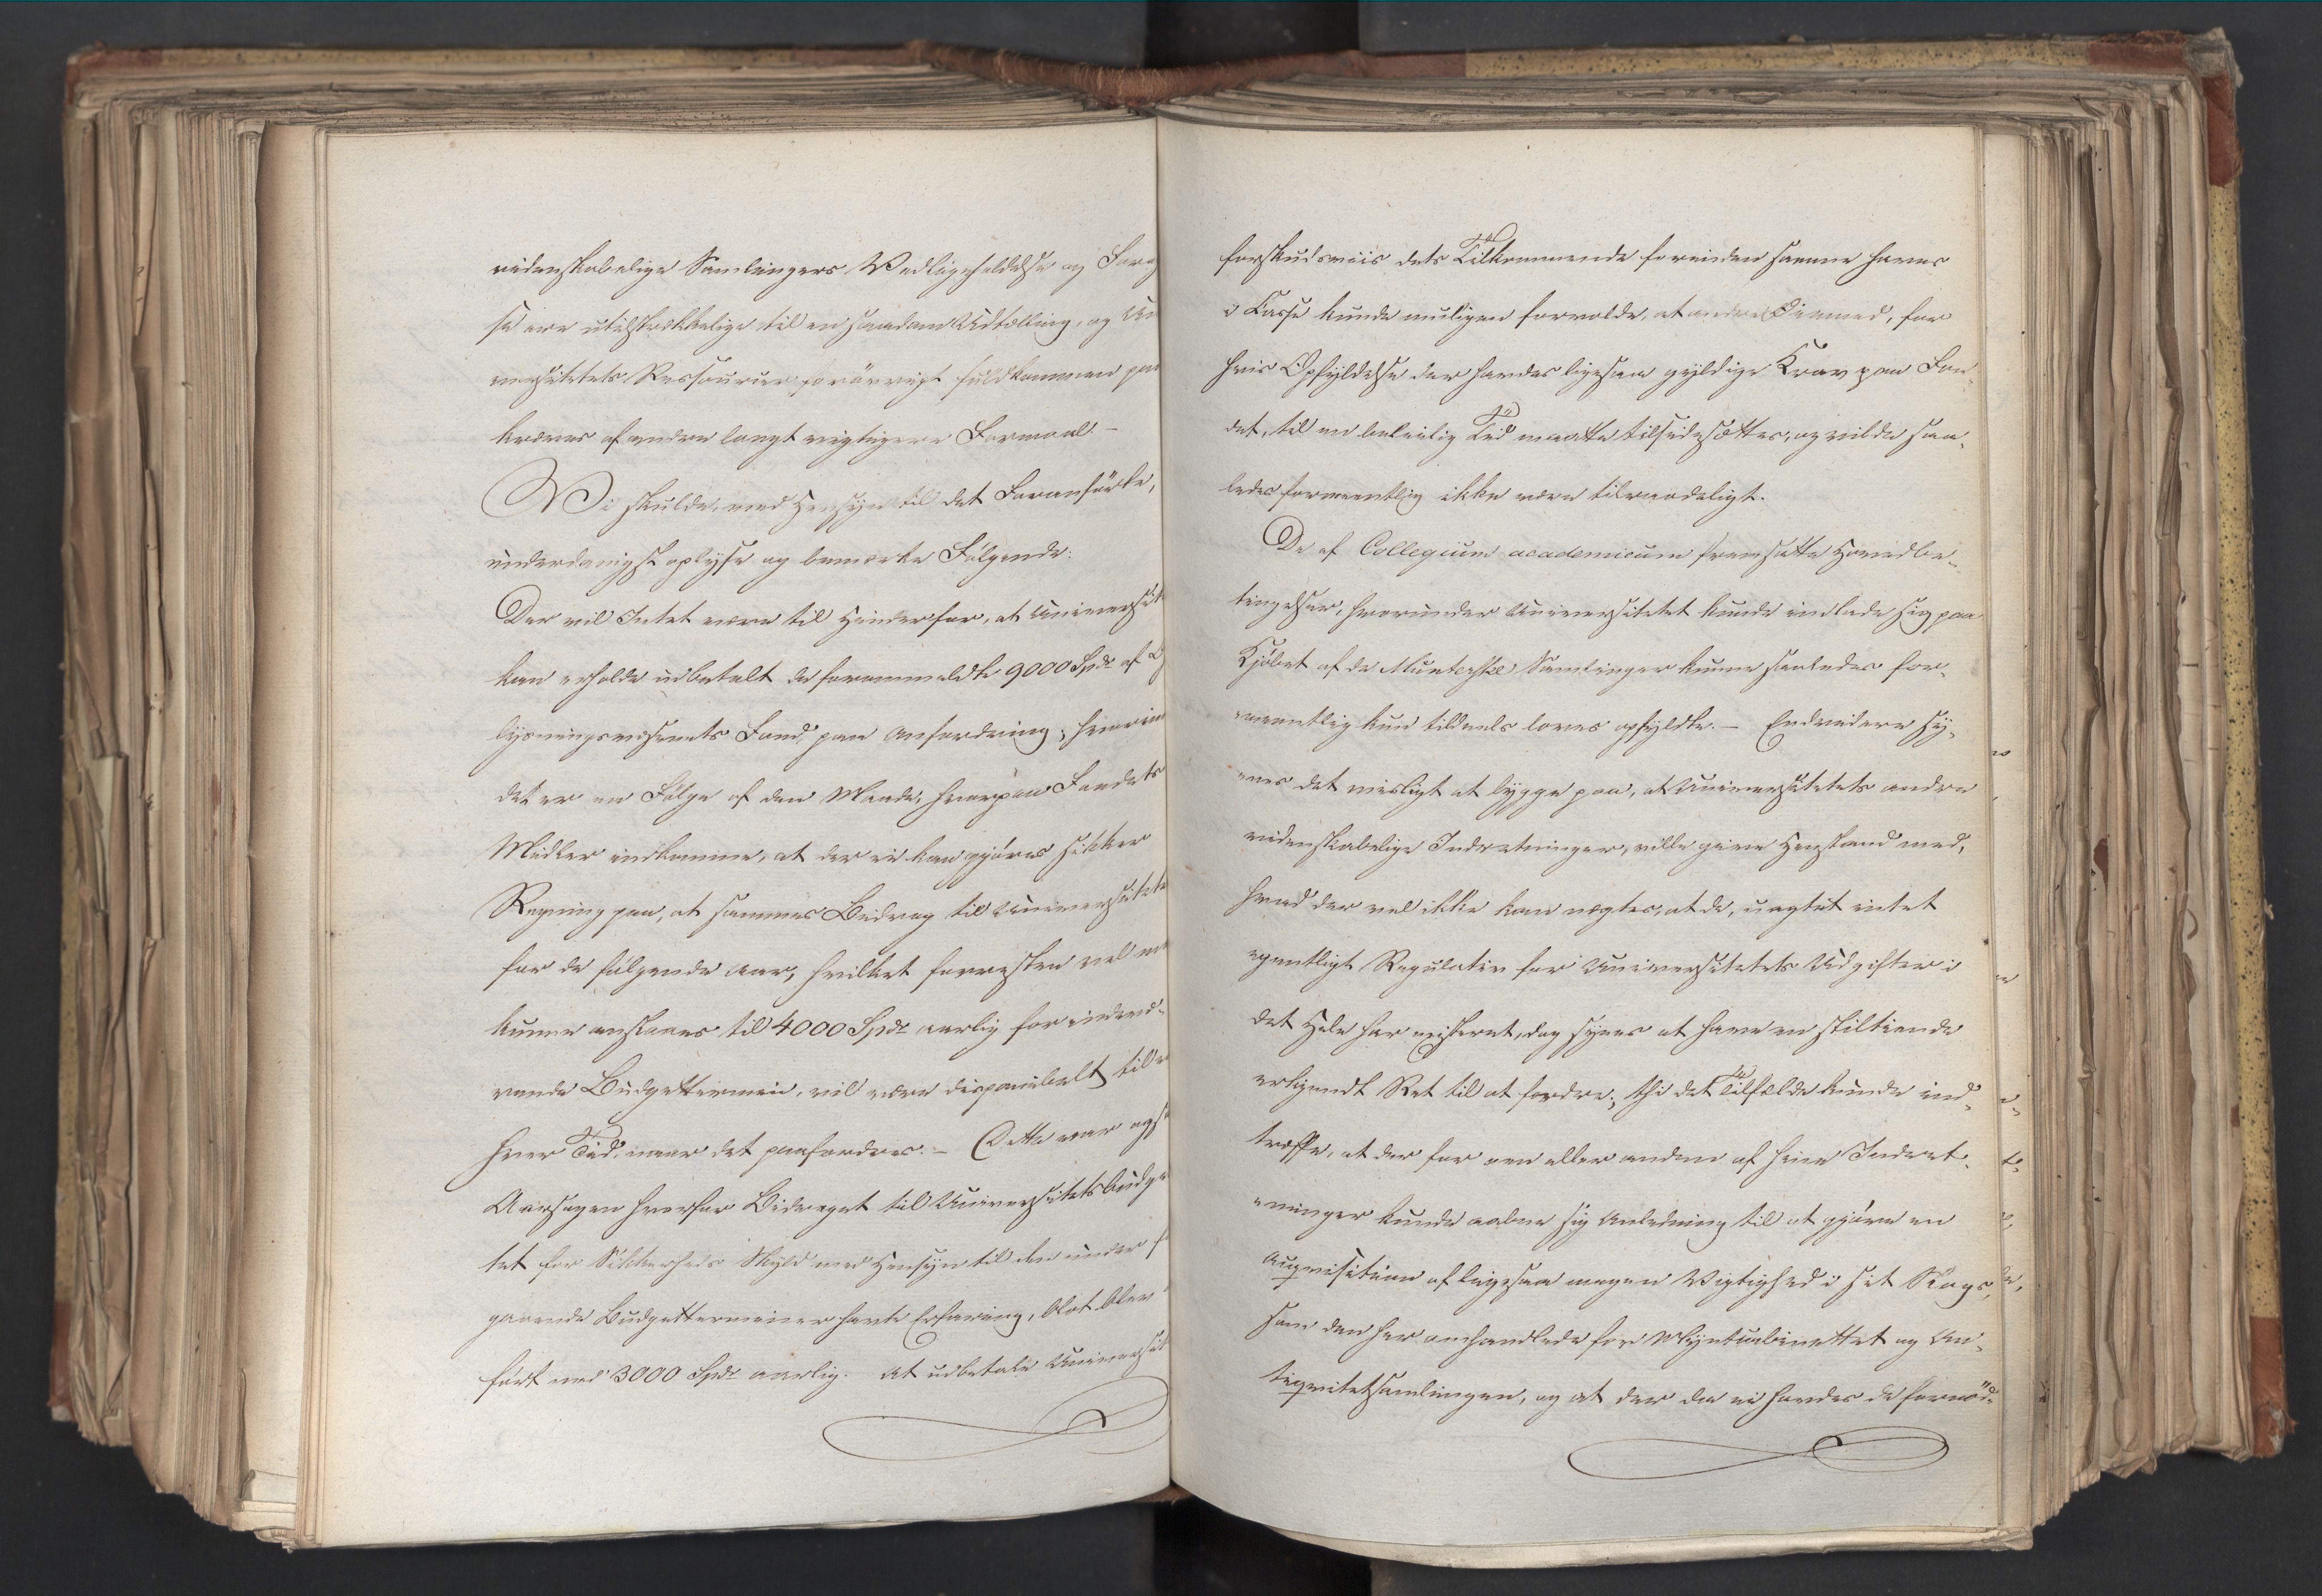 videnskabelige Samlingers Vedligeholdelse og Forø
se ere utilstrækkelige til en saadan Udtælling, og Un
versitetets Ressourcer forövrigt fuldkommen paa
kræves af andre langt vigtigere Formaal. –
Vi skulde, med Hensyn til det Foranförte,
underdanigst oplyse og bemærke Fölgende:
Der vil Intet være til Hinder for, at Universit
kan erholde udbetalt de forommeldte 9000 Spdr af O
lysningsvæsenets Fond, paa Anfordring; hvorim
det er en Fölge af den Maade, hvorpaa Fondets
Midler indkomme, at der ei kan gjöres sikker
Regning paa, at sammes Bidrag til Universitet
for de fölgende Aar, hvilket forresten vel m
kunne anslaaes til 4000 Spdr aarlig for indevæ-
rende Budgettermin, vil være disponibelt til e
hver Tid, naar det paafordres. – Dette var ogs
Aarsagen hvorfor Bidraget til Universitetsbudge
tet for Sikkerheds Skyld med Hensyn til den under
gaaende Budgetterminer havte Erfaring, blot blev
fört med 3000 Spdr aarlig. At udbetale Universit
forskudsviis dets Tilkommende forinden samme haves
i Casse kunde muligen forvolde, at andre Öiemed, for
hvis Opfyldelse der havdes ligesaa gyldige Krav paa Fon-
det, til en beleilig Tid maatte tilsidesættes, og vilde saa-
ledes formeentlig ikke være tilraadeligt.
De af Collegium academicum fremsatte Hovedbe-
tingelser, hvorunder Universitetet kunde indlade sig paa
Kjöbet af de Münterske Samlinger kunne saaledes for-
meentlig kun tildeels loves opfyldte. – Endvidere sy-
nes det misligt at bygge paa, at Universitetets andre
videnskabelige Indretninger, ville give Henstand med,
hvad der vel ikke kan nægtes, at de, uagtet intet
egentligt Regulativ for Universitetets Udgifter i
det Hele har existeret, dog synes at have en stiltiende
erkjendt Ret til at fordre; thi det Tilfælde kunde ind-
træffe, at der for een eller anden af hine Indret-
ninger kunde aabne sig Anledning til at gjöre en
Acqvisition af ligesaa megen Vigtighed i sit Slags,
som den her omhandlede for Myntcabinettet og An-
tiqvitetsamlingen, og at der da ei havdes de fornöd-